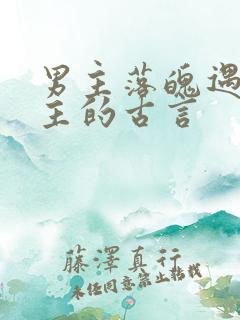 男主落魄遇
主的古言
藤澤真行
未经同意禁止转载